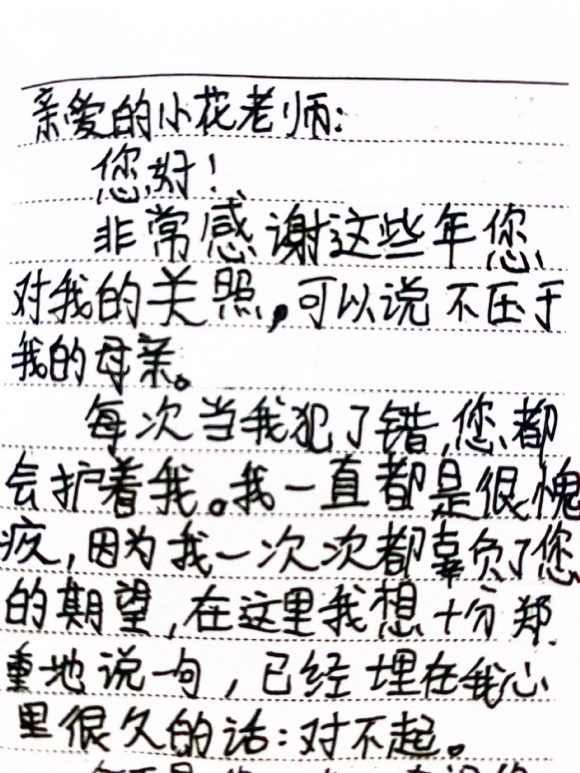 亲爱的小花老师:
您好!
非常感谢这些年您
对我的关照,可以说不压于
我的母亲。
每次当我犯了错,您都
会护着我。我一直都是很愧
疚,因为我一次次都辜负了您
的期望,在这里我想十分郑
重地说一句,已经埋在我心
里很久的话:对不起。